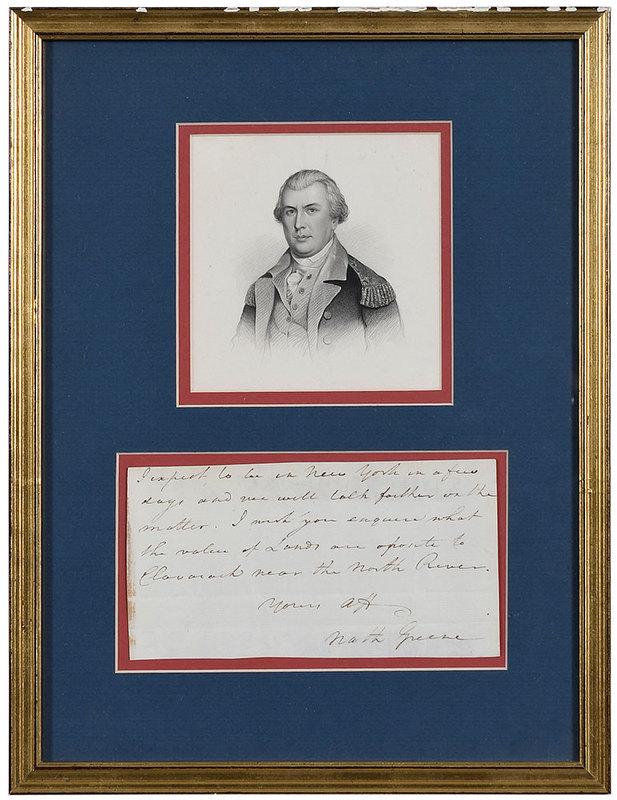 I expect to be in New York in a few
days and we will talk farther on the
matter. I wish you enquire what
the value of Lands are oposite to
Claverack near the North River.
Yours Aff
Nath Greene